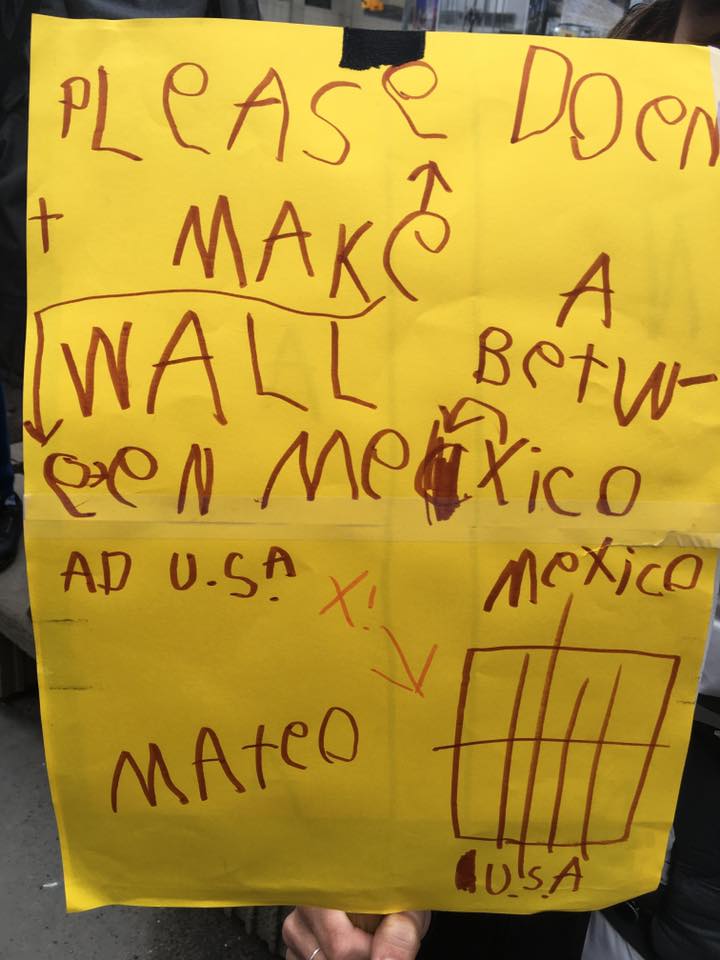 PLeASe DOeN
t MAKe A
WALL BetW-
eeN MeXico
AD U.S.A
X!
MexicO
MAteO
U.S.A